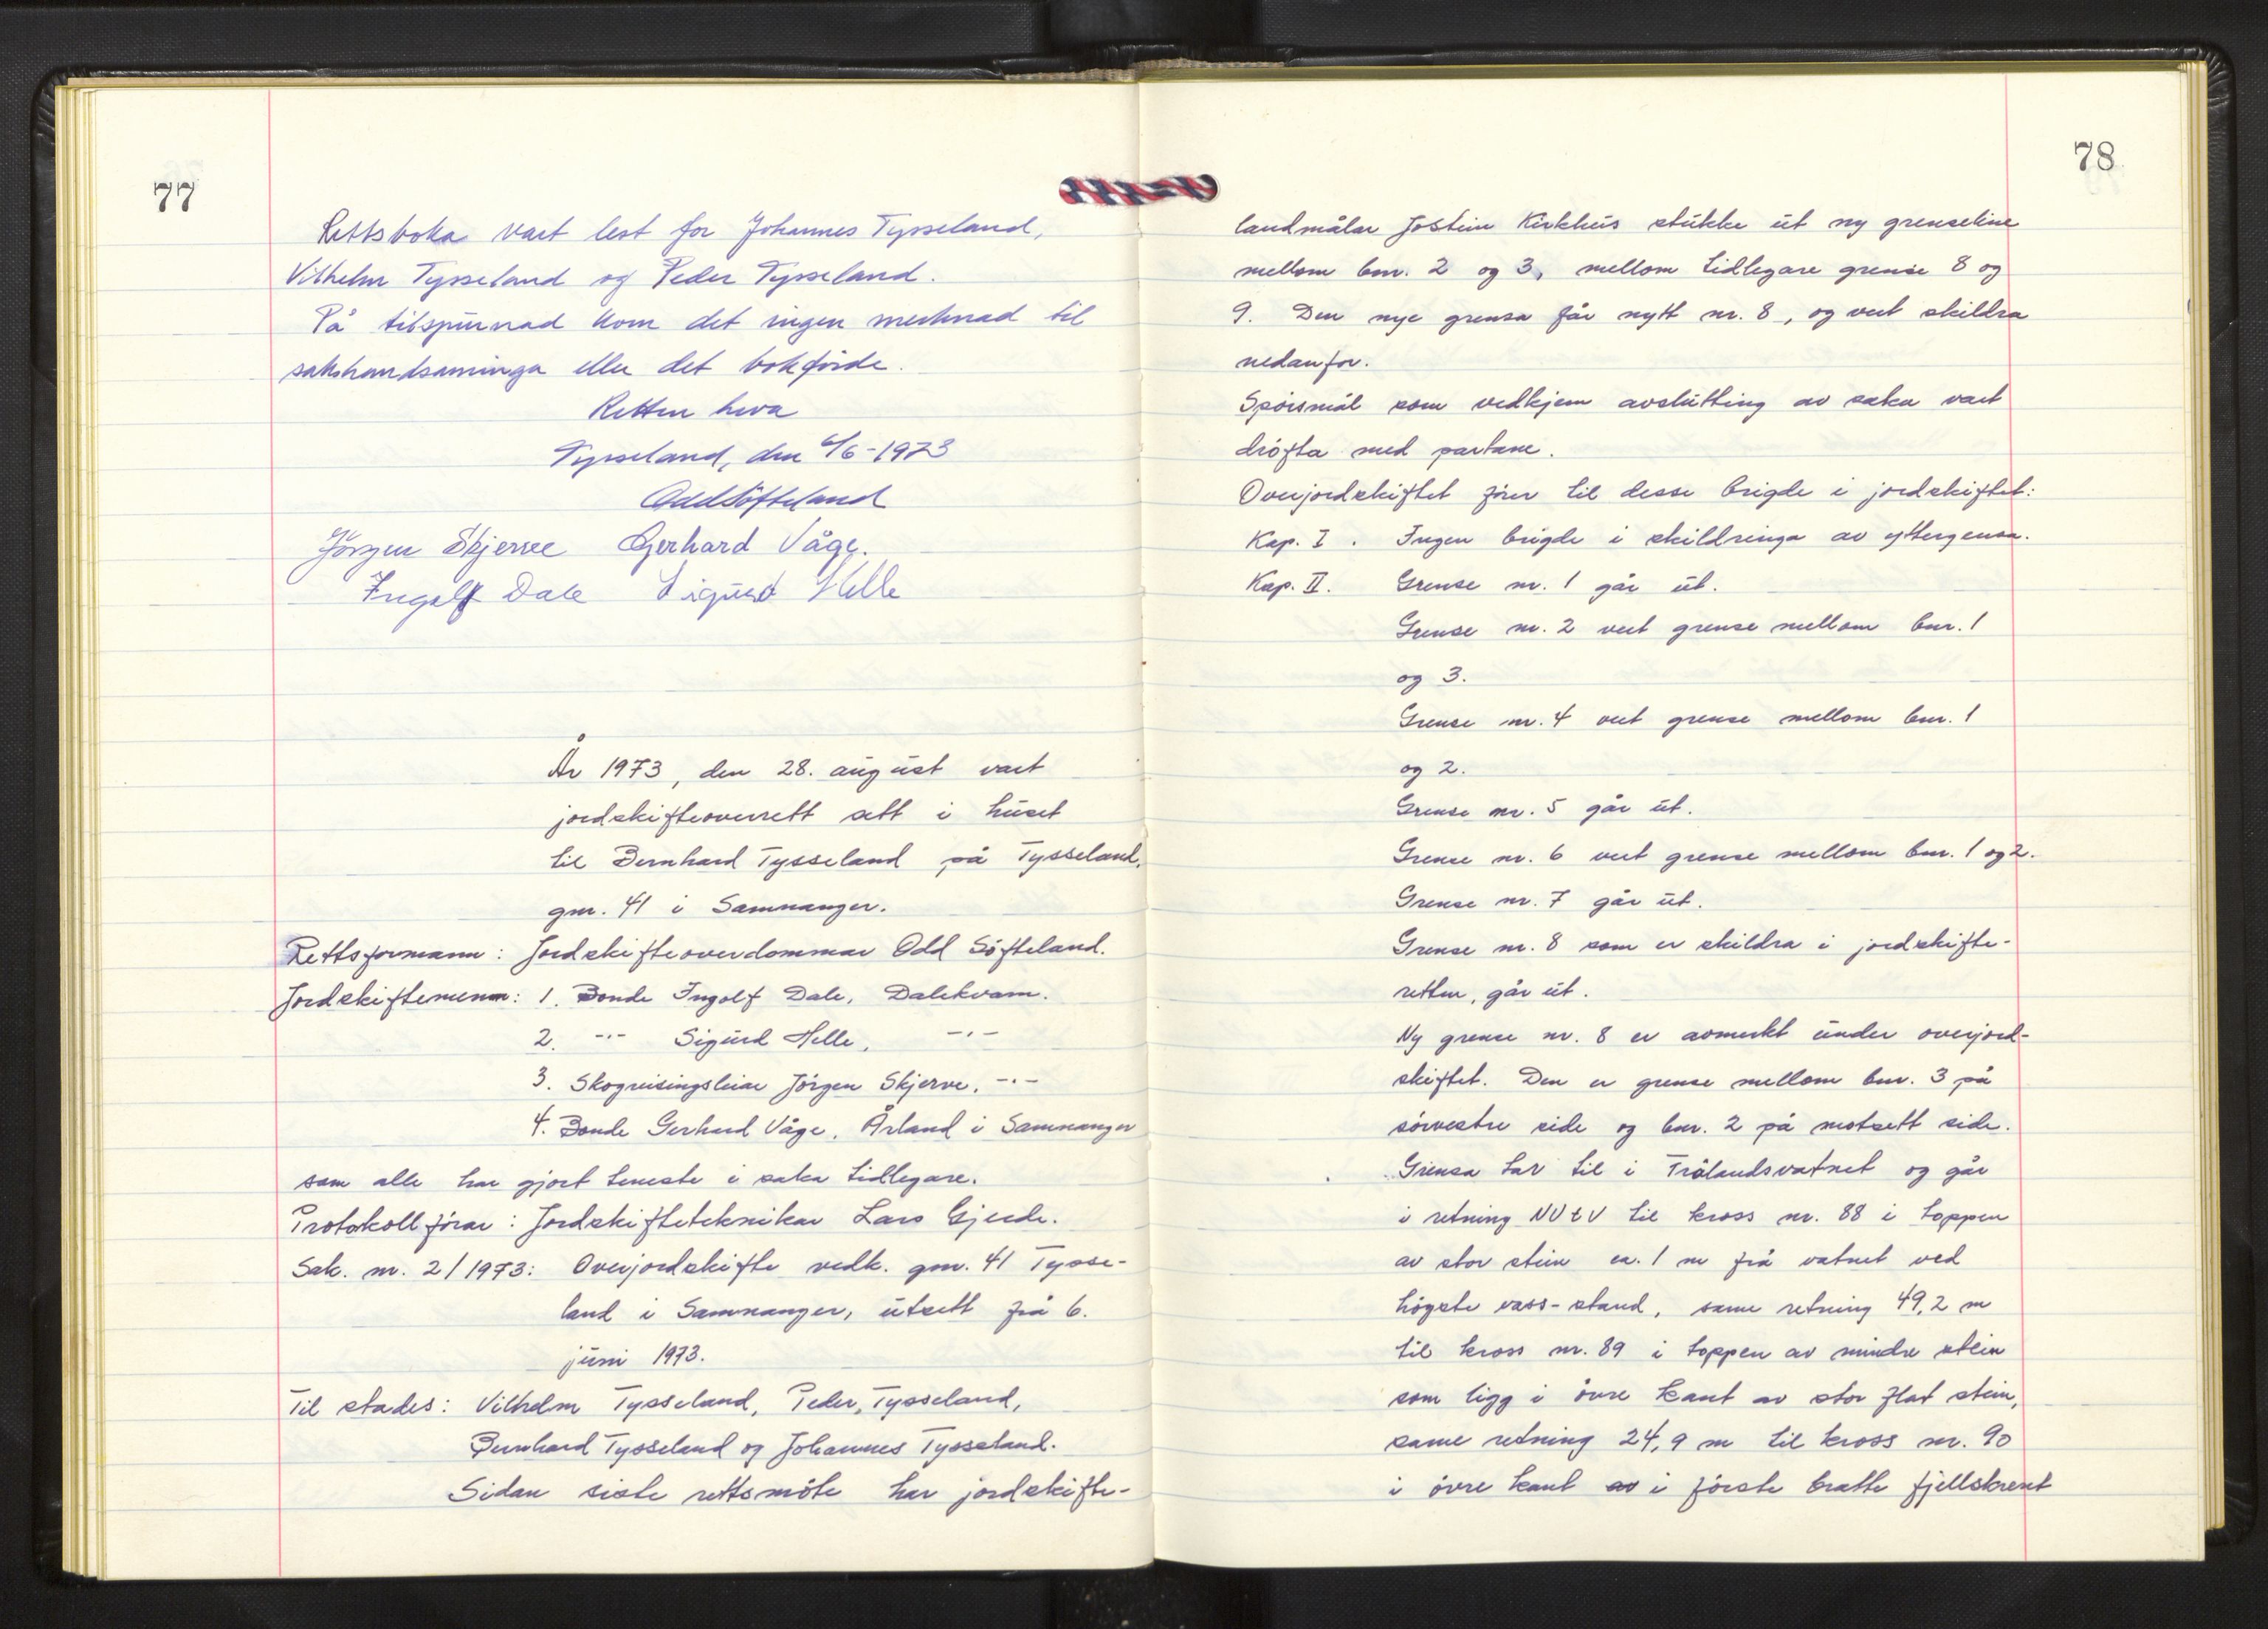 77
Rettsboka vart lest for Johannes Tysseland,
Vilhelm Tysseland og Peder Tysseland.
På tilspurnad kom det ingen merknad til
sakshandsaminga eller det bokførde.
Retten heva
Tysseland, den 6/6-1973
Odd Söfteland
Jörgen Skjerve Gerhard Våge.
Ingolf Dale Sigurd Helle
År 1973, den 28. august vart
jordskifteoverrett sett i huset
til Bernhard Tysseland på Tysseland,
gnr. 41 i Samnanger.
Rettsformann: Jordskifteoverdommar Odd Söfteland.
Jordskiftemenn: 1. Bonde Ingolf Dale, Dalekvam.
2. -"- Sigurd Helle, -"-
3. Skogreisingsleiar Jörgen Skjerve, -"-
4. Bonde Gerhard Våge, Årland i Samnanger
som alle har gjort teneste i saka tidlegare.
Protokollförar: Jordskifteteknikar Lars Gjerde.
Sak. nr. 2/1973: Overjordskifte vedk. gnr. 41 Tysse-
land i Samnanger, utsett frå 6.
juni 1973.
Til stades: Vilhelm Tysseland, Peder Tysseland,
Bernhard Tysseland og Johannes Tysseland.
Sidan siste rettsmöte har jordskifte-
78
landmålar Jostein Kirkhus stukke ut ny grenseline
mellom bnr. 2 og 3, mellom tidlegare grense 8 og
9. Den nye grensa får nytt nr. 8, og vert skildra
nedanfor.
Spörsmål som vedkjem avslutting av saka vart
dröfta med partane.
Overjordskiftet förer til desse brigde i jordskiftet:
Kap. I. Ingen brigde i skildringa av yttergensa.
Kap. II. Grense nr. 1 går ut.
Grense nr. 2 vert grense mellom bnr. 1
og 3.
Grense nr. 4 vert grense mellom bnr. 1
og 2.
Grense nr. 5 går ut.
Grense nr. 6 vert grense mellom bnr. 1 og 2.
Grense nr. 7 går ut.
Grense nr. 8 som er skildra i jordskifte-
retten, går ut.
Ny grense nr. 8 er avmerkt under overjord-
skiftet. Den er grense mellom bnr. 3 på
sörvestre side og bnr. 2 på motsett side.
Grensa tar til i Trålandsvatnet og går
i retning NVtV til kross nr. 88 i toppen
av stor stein ca. 1 m frå vatnet ved
högste vass-stand, same retning 49,2 m
til kross nr. 89 i toppen av mindre stein
som ligg i övre kant av stor flat stein,
same retning 24,9 m til kross nr. 90
i övre kant av i förste bratte fjellskrent